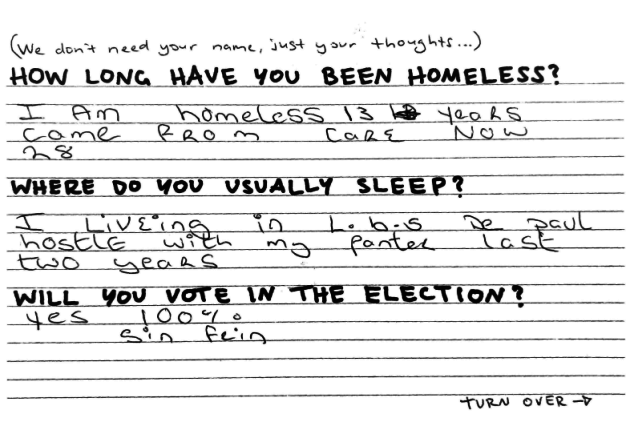 (We don't need your name, just your thoughts...)
HOW LONG HAVE YOU BEEN HOMELESS?
I Am homeless 13 years
came from care now
28
WHERE DO YOU USUALLY SLEEP?
I Liveing in L.b.s De paul
hostle with my panter last
two years
WILL YOU VOTE IN THE ELECTION?
yes 100%
sin fein
TURN OVER →